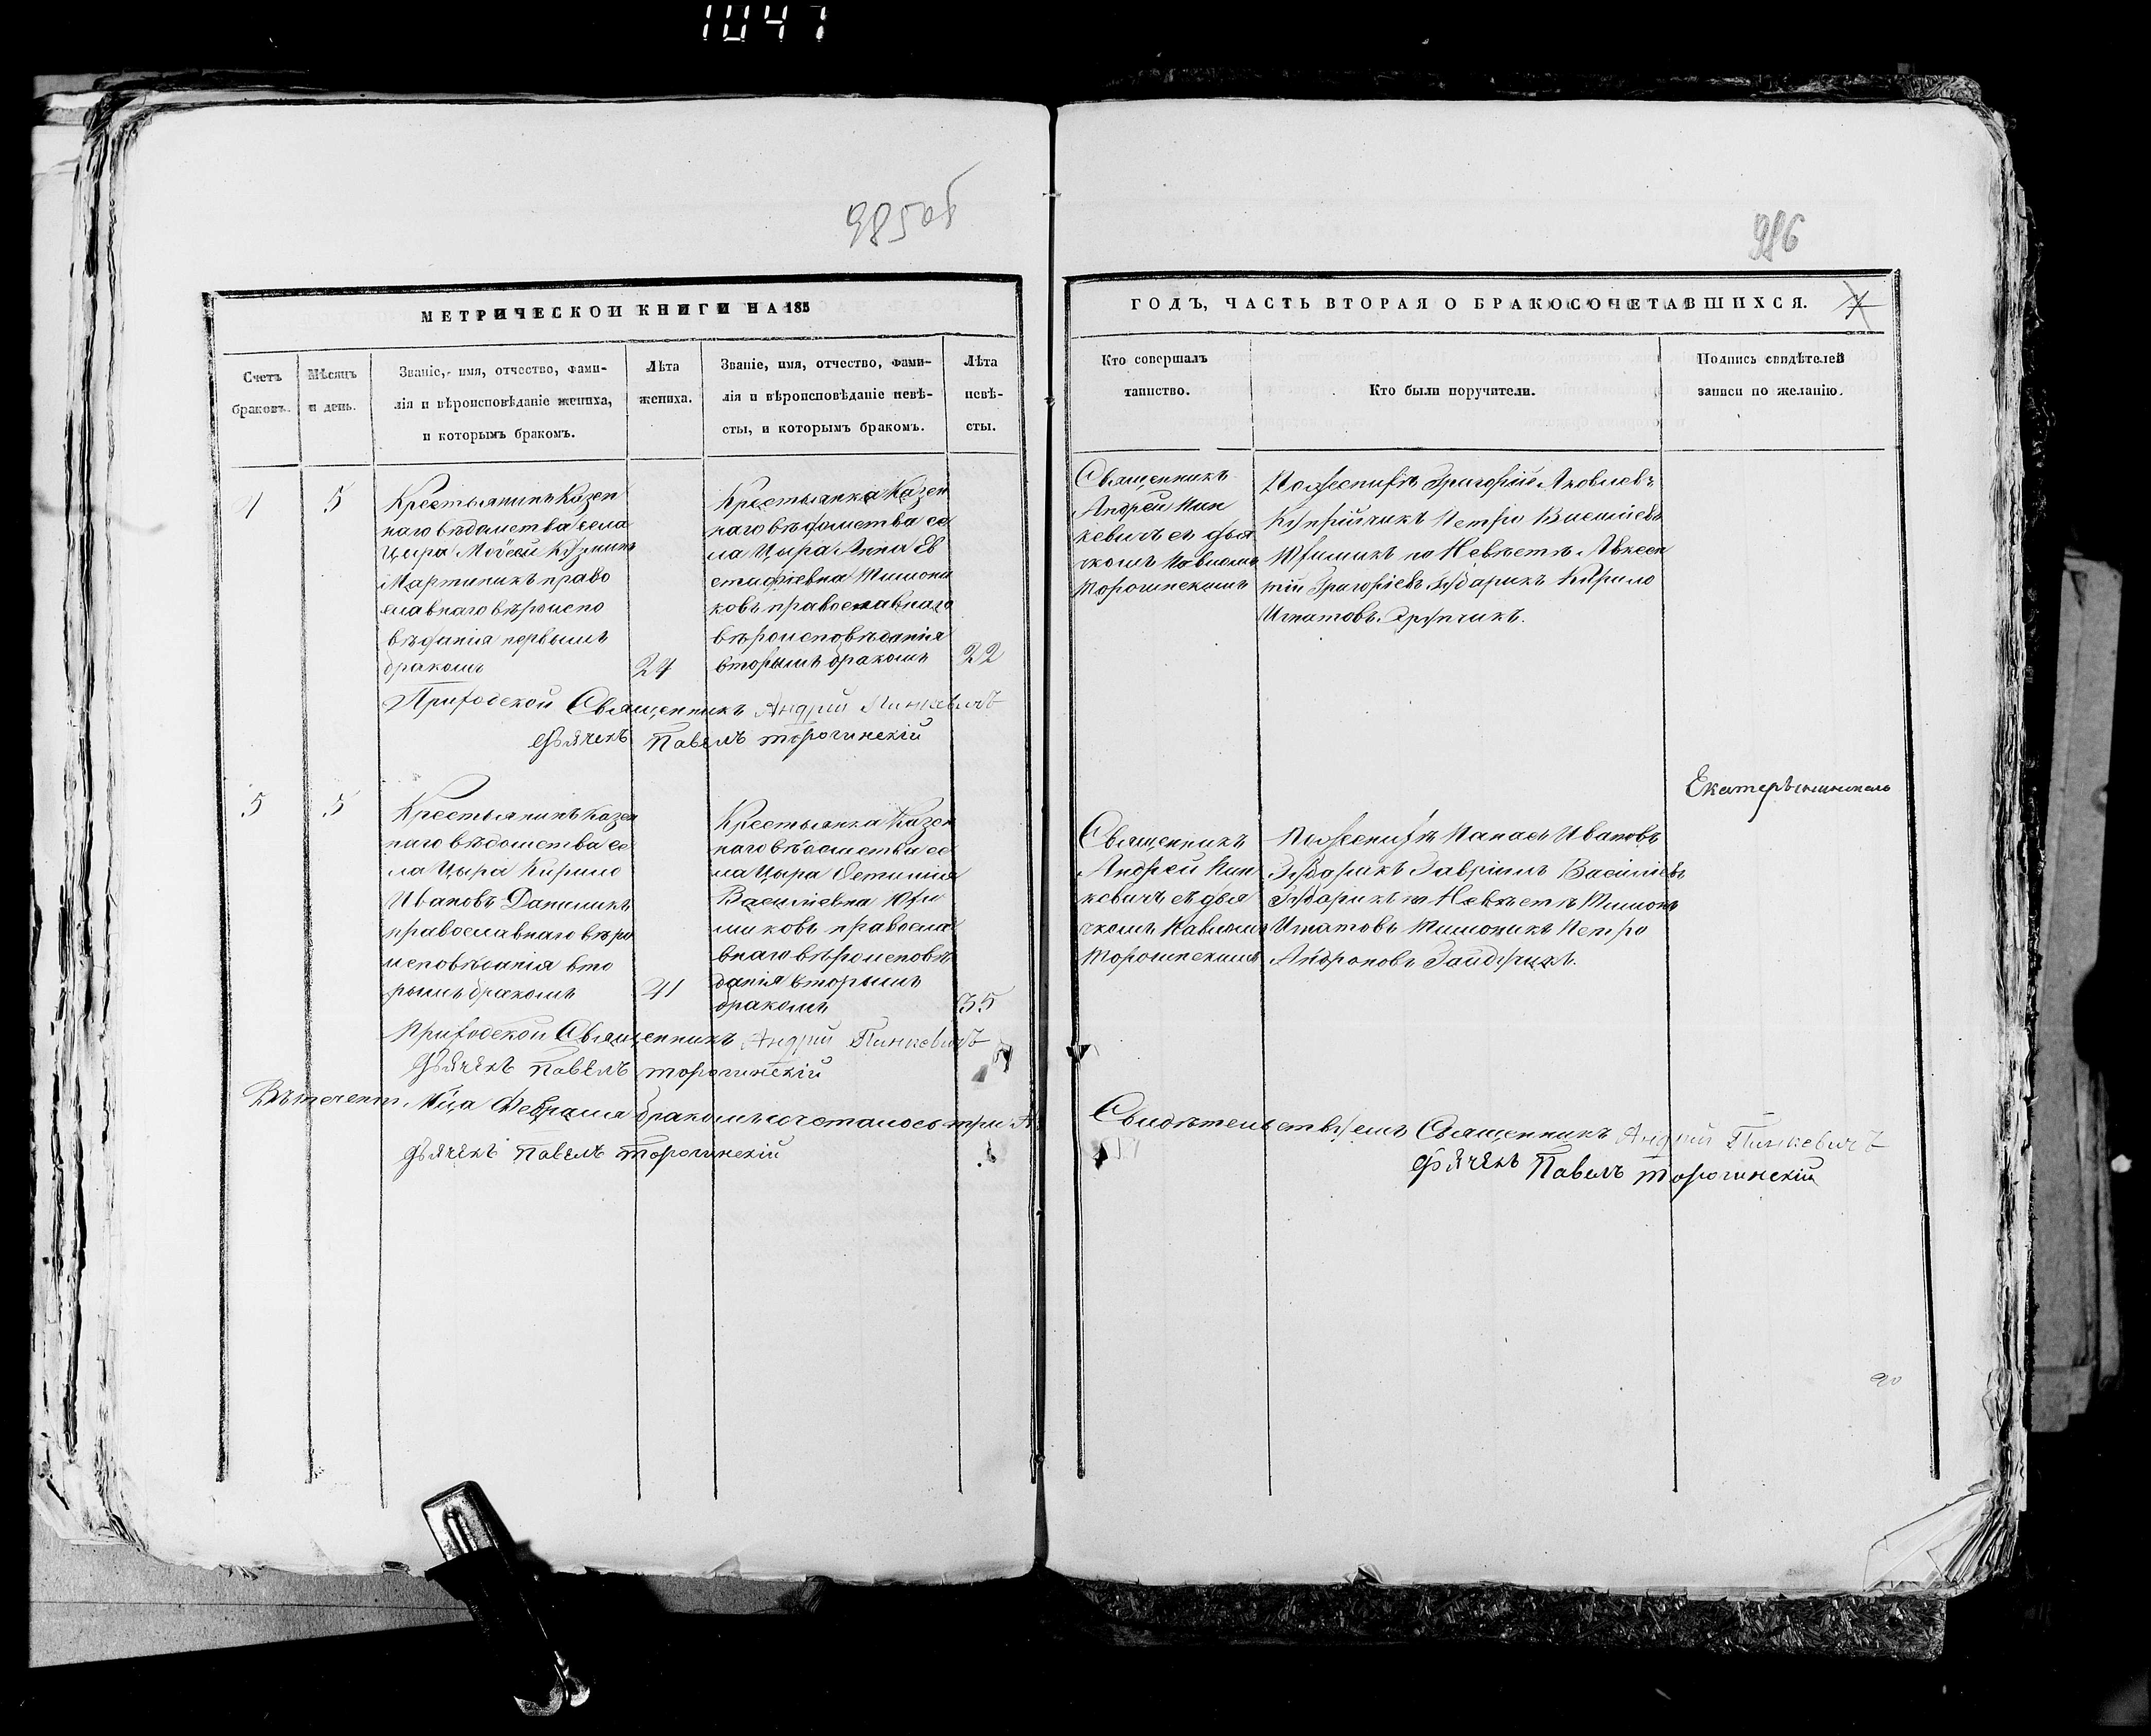 1047
985об
986
МЕТРИЧЕСКОЙ КНИГИ НА 185
ГОДЪ, ЧАСТЬ ВТОРАЯ О БРАКОСОЧЕТАВШИХСЯ.
7
Счетъ
браковъ.
Мѣсяцъ
и день.
Званіе, имя, отчество, фами-
лія и вѣроисповѣданіе жениха,
и которымъ бракомъ.
Лѣта
жениха.
Званіе, имя, отчество, фами-
лія и вѣроисповѣданіе невѣ-
сты, и которымъ бракомъ.
Лѣта
невѣ-
сты.
Кто совершалъ
таинство.
Кто были поручители.
Подпись свидѣтелей
записи по желанію.
4
5
Крестьянинъ Казен
наго вѣдомства села
Цыра Мойсей
Мартиникъ право
славнаго вѣроиспо
вѣданія первымъ
бракомъ
24
Крестьянка Казен
наго вѣдомства се
ла Цыра Анна Ев
стафіевна Тимони
ковъ православнаго
вѣроисповѣданія
вторымъ бракомъ
22
Священникъ
Андрей Пин
кевичъ съ дья
чкомъ Павломъ
Торочинскимъ
По Женихѣ Григорій Яковлевъ
Петро Василіевъ
по Невѣстѣ Авксен
тій Григоріевъ Кирило
Игнатовъ
Приходской Священникъ Андрій Пинкевичъ
Дьячекъ Павелъ Торочинскій
5
5
Крестьянинъ Казен
наго вѣдомства се
ла Цыра Кирило
Ивановъ Даниликъ
православнаго вѣро
исповѣданія вто
рымъ бракомъ
41
Крестьянка Казен
наго вѣдомства се
ла Цыра Устинія
Василіевна Юхи
миковъ правосла
внаго вѣроисповѣ
данія вторымъ
бракомъ
35
Екатер
Священникъ
Андрей Пин
кевичъ съ дья
чкомъ Павломъ
Торочинскимъ
По Женихѣ Панасъ Ивановъ
Гавріилъ Василіевъ
по Невѣстѣ Тимонъ
Игнатовъ Тимоникъ Петро
Андроновъ
Приходской Священникъ Андрій Пинкевичъ
Дьячекъ Павелъ Торочинскій
Въ теченіи Мца Февраля бракомъ сочеталось три
Дьячекъ Павелъ Торочинскій
Свидѣтельствуемъ Священникъ Андрій Пинкевичъ
Дьячекъ Павелъ Торочинскій